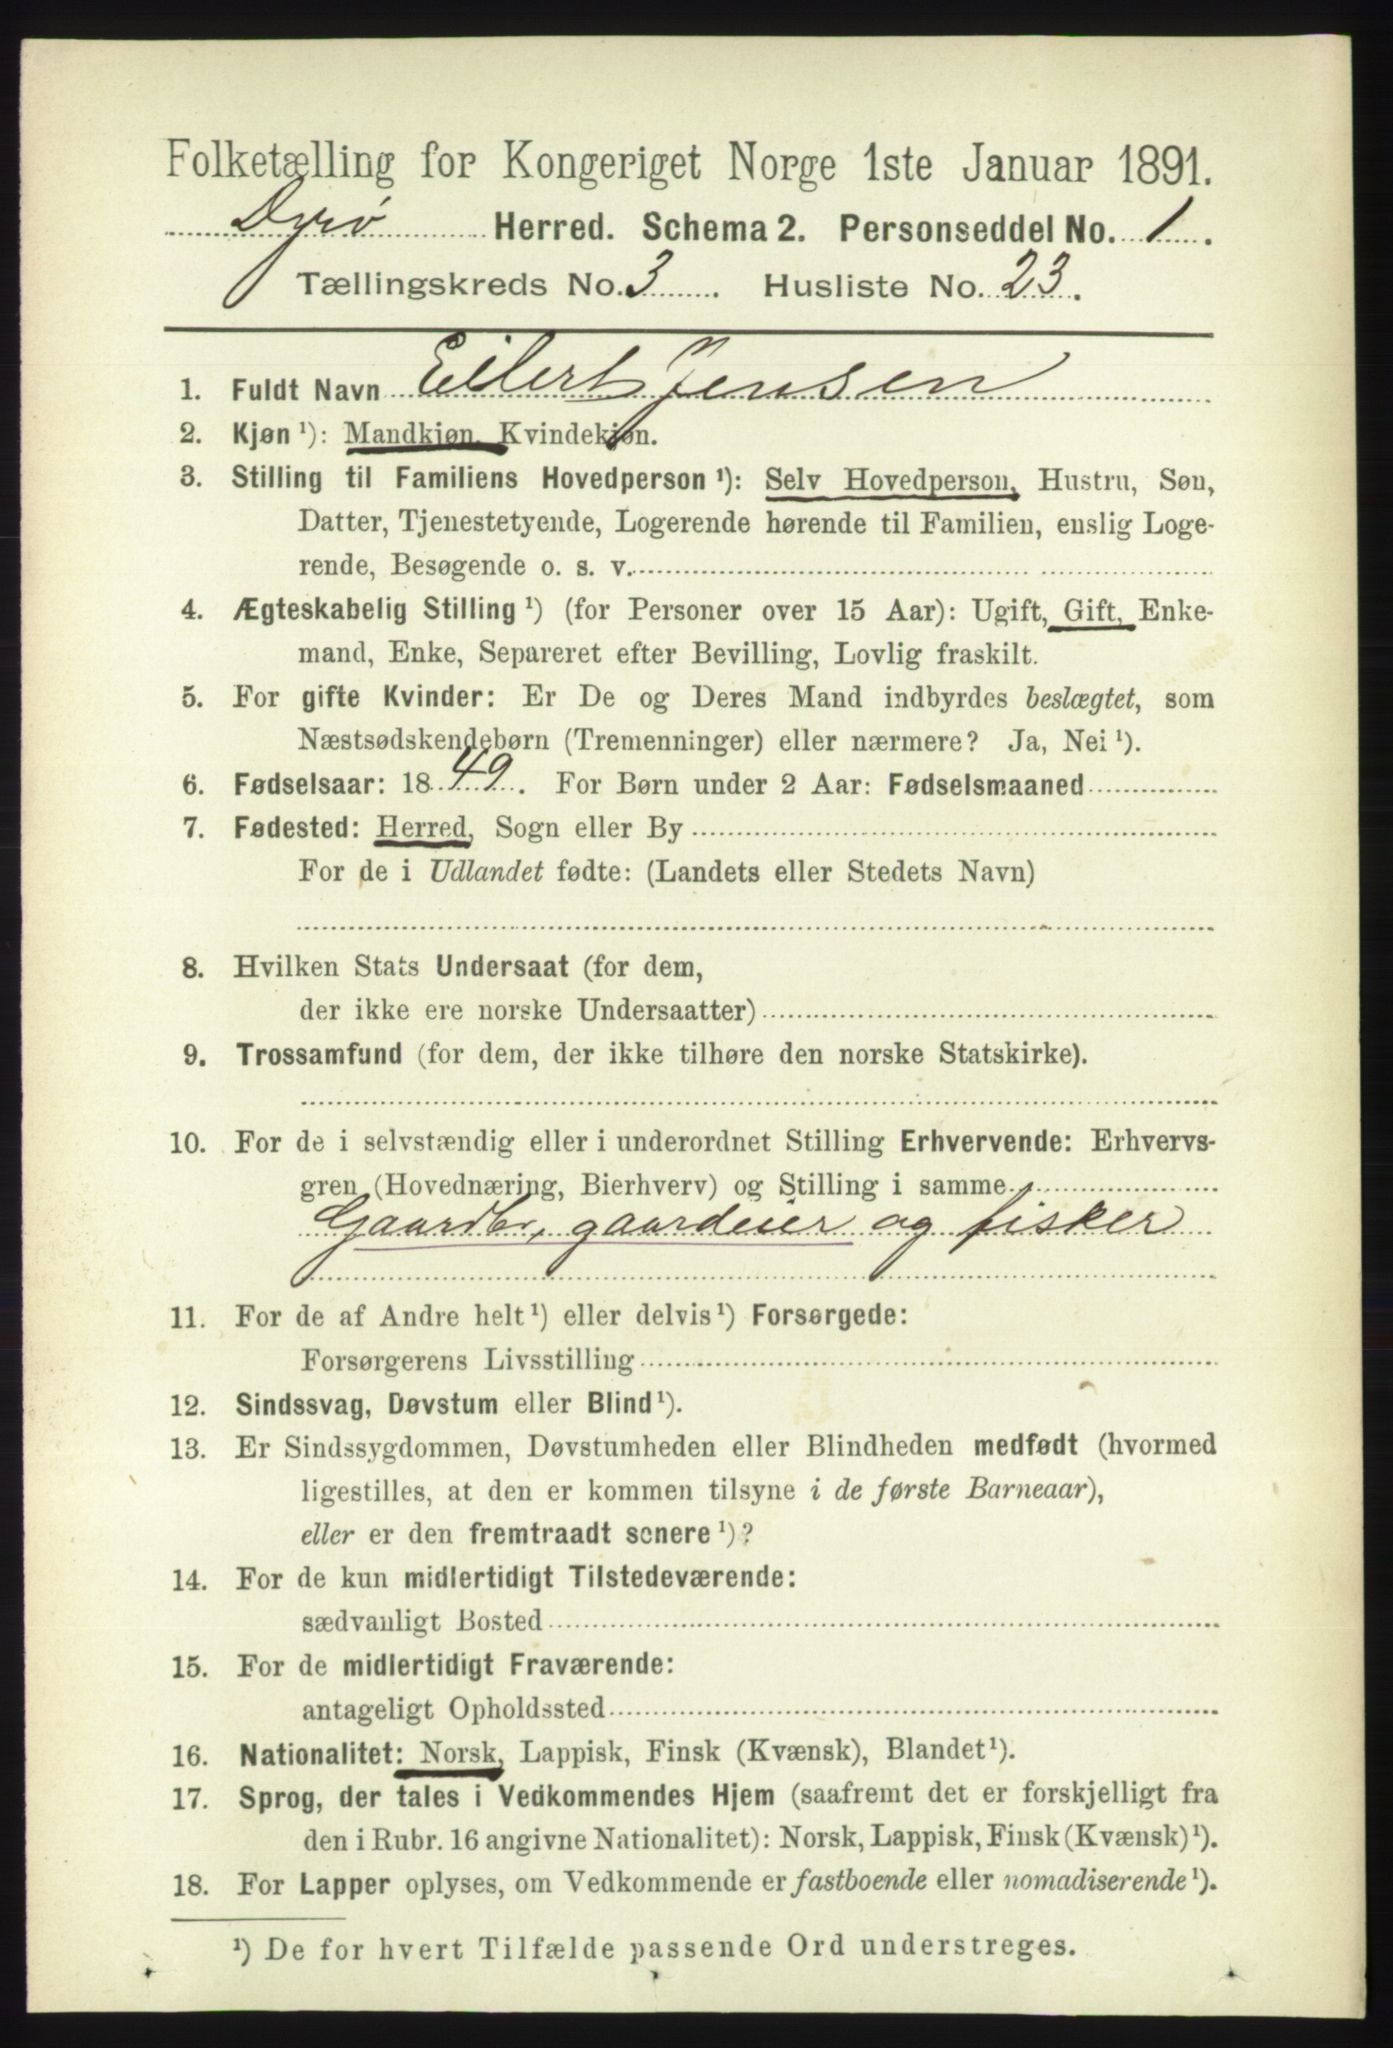 Folketælling for Kongeriget Norge 1ste Januar 1891.
Dyrø Herred. Schema 2. Personseddel No. 1.
Tællingskreds No. 3. Husliste No. 23.
1. Fuldt Navn Eilert Jensen
2. Kjøn ¹): Mandkjøn, Kvindekjøn.
3. Stilling til Familiens Hovedperson ¹): Selv Hovedperson, Hustru, Søn,
Datter, Tjenestetyende, Logerende hørende til Familien, enslig Loge-
rende, Besøgende o. s. v.
4. Ægteskabelig Stilling ¹) (for Personer over 15 Aar): Ugift, Gift, Enke-
mand, Enke, Separeret efter Bevilling, Lovlig fraskilt.
5. For gifte Kvinder: Er De og Deres Mand indbyrdes beslægtet, som
Næstsødskendebørn (Tremenninger) eller nærmere? Ja, Nei ¹).
6. Fødselsaar: 1849. For Børn under 2 Aar: Fødselsmaaned
7. Fødested: Herred, Sogn eller By
For de i Udlandet fødte: (Landets eller Stedets Navn)
8. Hvilken Stats Undersaat (for dem,
der ikke ere norske Undersaatter)
9. Trossamfund (for dem, der ikke tilhøre den norske Statskirke).
10. For de i selvstændig eller i underordnet Stilling Erhvervende: Erhvervs-
gren (Hovednæring, Bierhverv) og Stilling i samme
Gaardbr, gaardeier og fisker
11. For de af Andre helt ¹) eller delvis ¹) Forsørgede:
Forsørgerens Livsstilling
12. Sindssvag, Døvstum eller Blind ¹).
13. Er Sindssygdommen, Døvstumheden eller Blindheden medfødt (hvormed
ligestilles, at den er kommen tilsyne i de første Barneaar),
eller er den fremtraadt senere ¹)?
14. For de kun midlertidigt Tilstedeværende:
sædvanligt Bosted
15. For de midlertidigt Fraværende:
antageligt Opholdssted
16. Nationalitet: Norsk, Lappisk, Finsk (Kvænsk), Blandet ¹).
17. Sprog, der tales i Vedkommendes Hjem (saafremt det er forskjelligt fra
den i Rubr. 16 angivne Nationalitet): Norsk, Lappisk, Finsk (Kvænsk) ¹).
18. For Lapper oplyses, om Vedkommende er fastboende eller nomadiserende ¹).
¹) De for hvert Tilfælde passende Ord understreges.